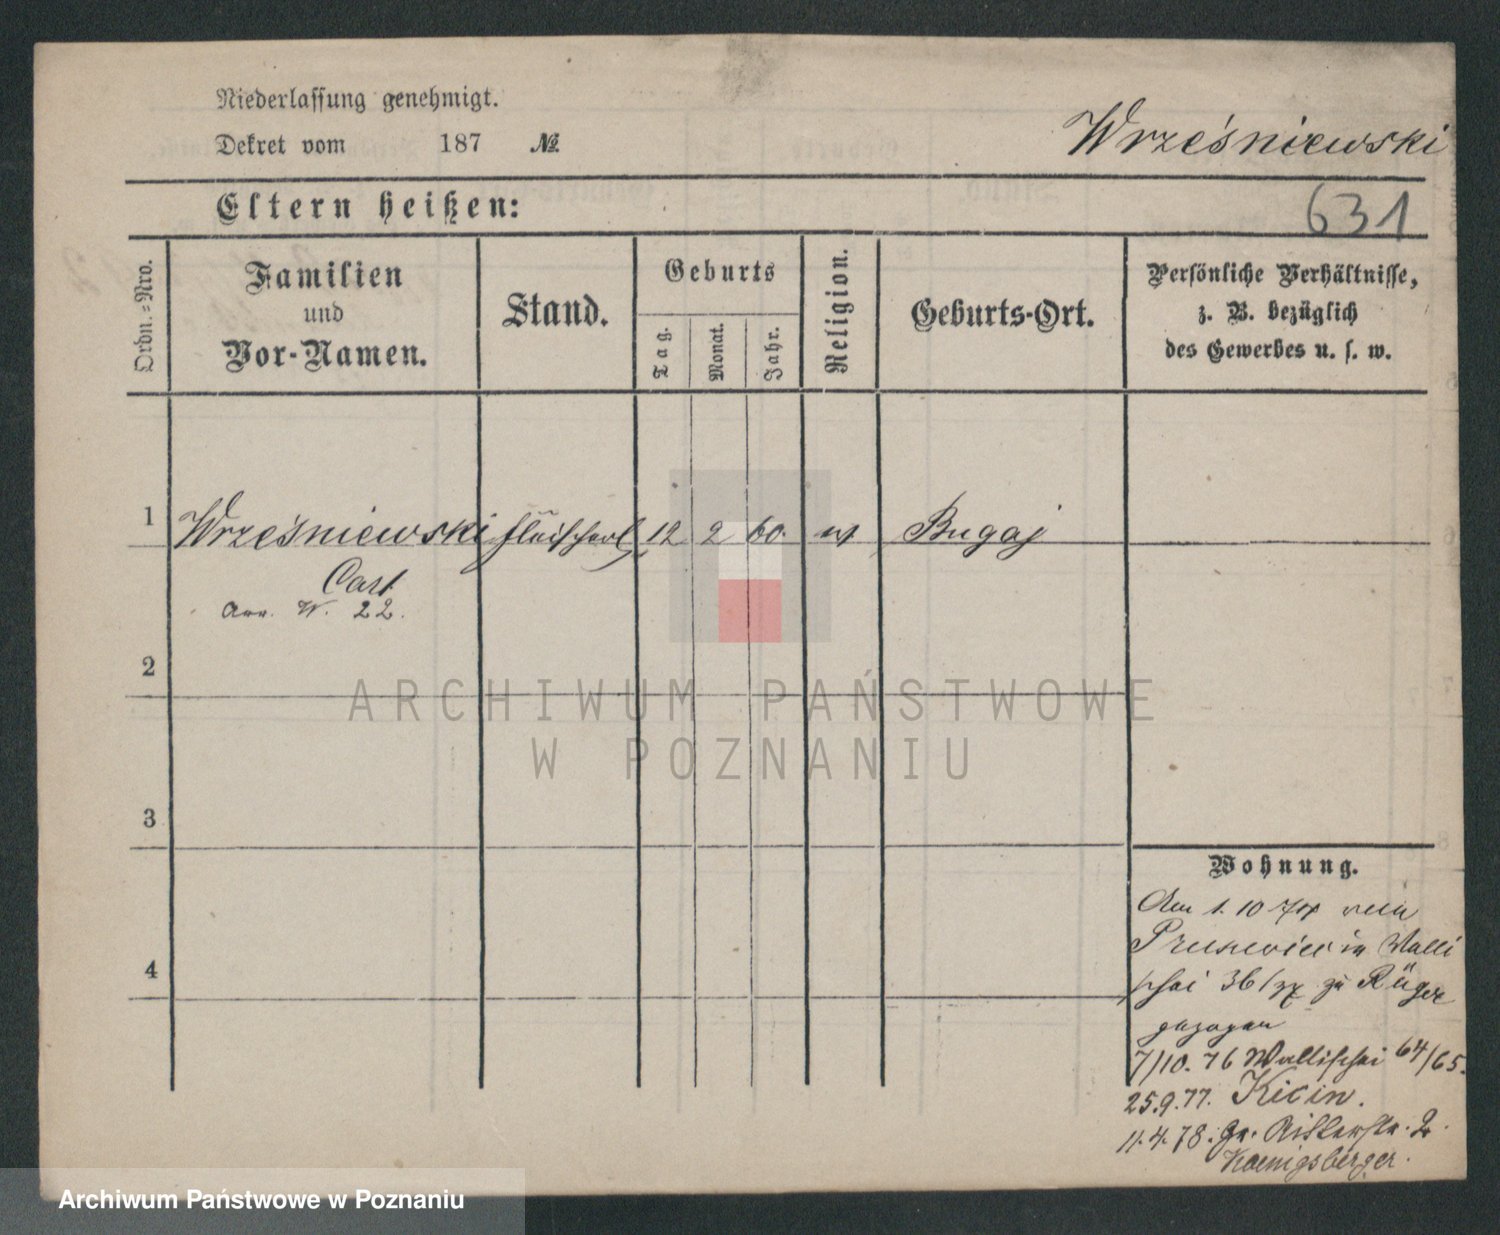 Niederlassung genehmigt.
Dekret vom 187 №
Wrześniewski
Eltern heißen:
631
Ordn.-Nro.
Familien
und
Vor-Namen.
Stand.
Geburts
Tag.
Monat.
Jahr.
Religion.
Geburts-Ort.
Persönliche Verhältnisse,
z. B. bezüglich
des Gewerbes u. s. w.
1 Wrześniewski 12 2 60. Bugaj
Carl
W. 22.
2
ARCHIWUM PAŃSTWOWE
W POZNANIU
3
4
Wohnung.
1. 10
in Walli
schei zu Rüger
gezogen
7/10. 76 Wallischei 64/65.
25.9.77. Kicin.
11.4.78. Gr. Ritterstr. 2.
Koenigsberger.
Archiwum Państwowe w Poznaniu